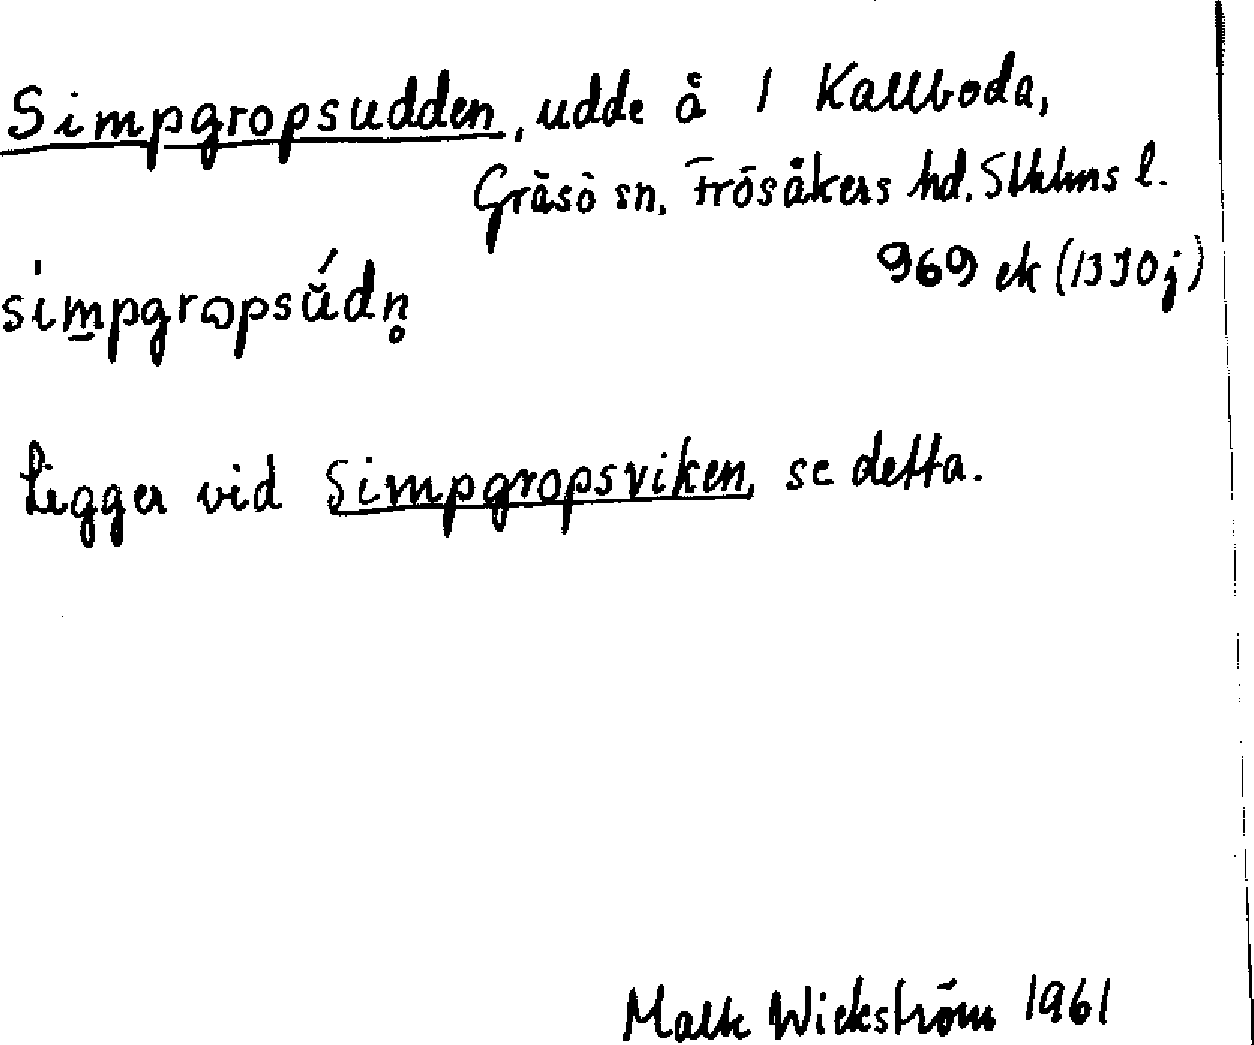 Simpgropsudden, udde å 1 Kallboda,
Gräsö sn, Frösåkers hd. Sthlms l.
969 ek (13 I 0 j)
símpgrɷpsŭ́dn̥
Ligger vid Simpgropsviken, se detta.
Malte Wickström 1961